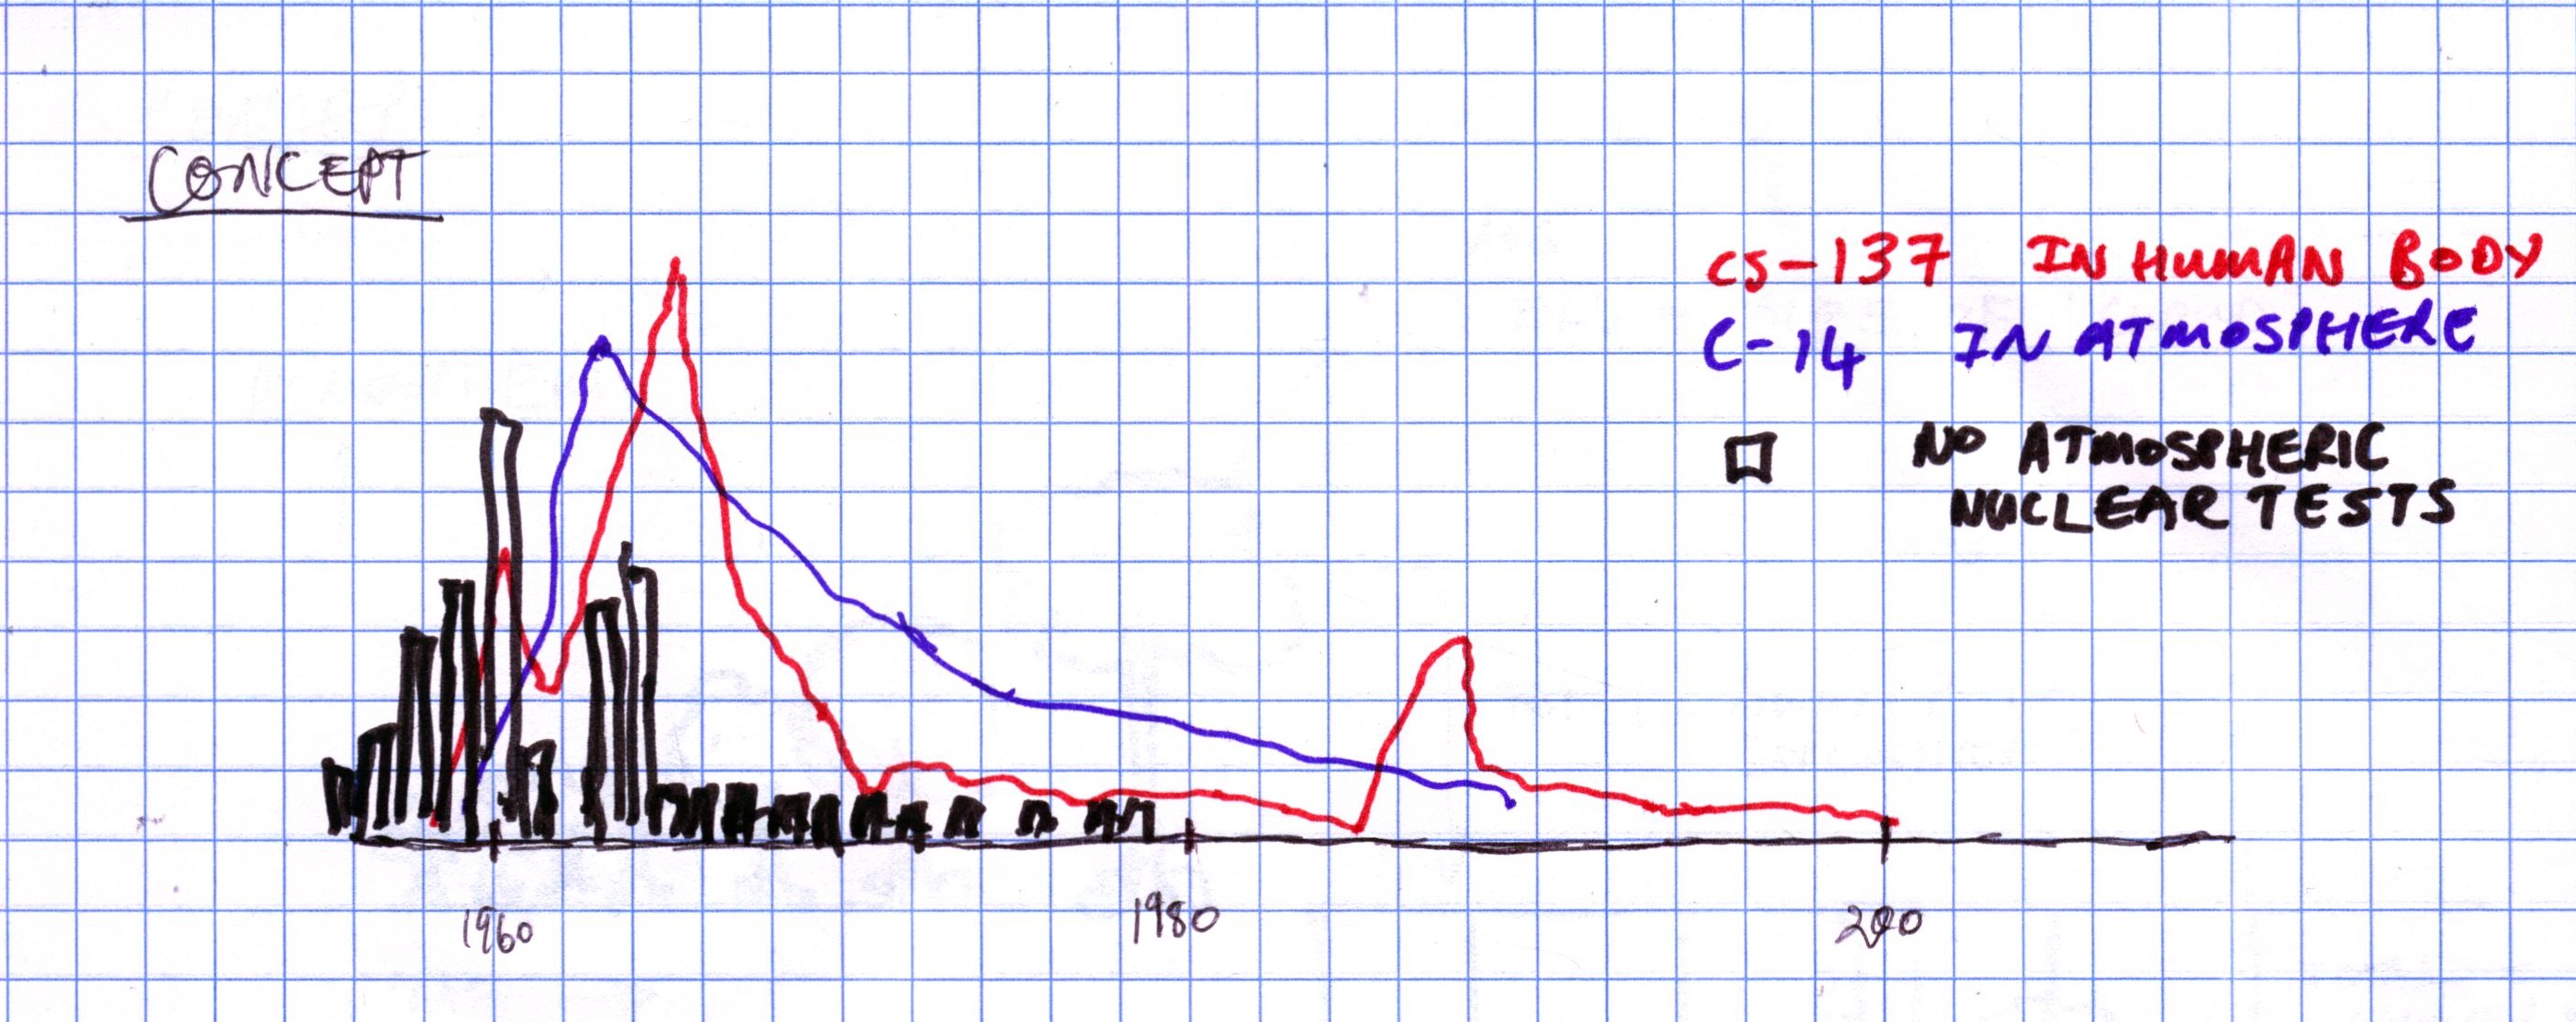 CONCEPT
CS-137 IN HUMAN BODY
C-14 IN ATMOSPHERE
NO ATMOSPHERIC
NUCLEAR TESTS
1960 1980 200